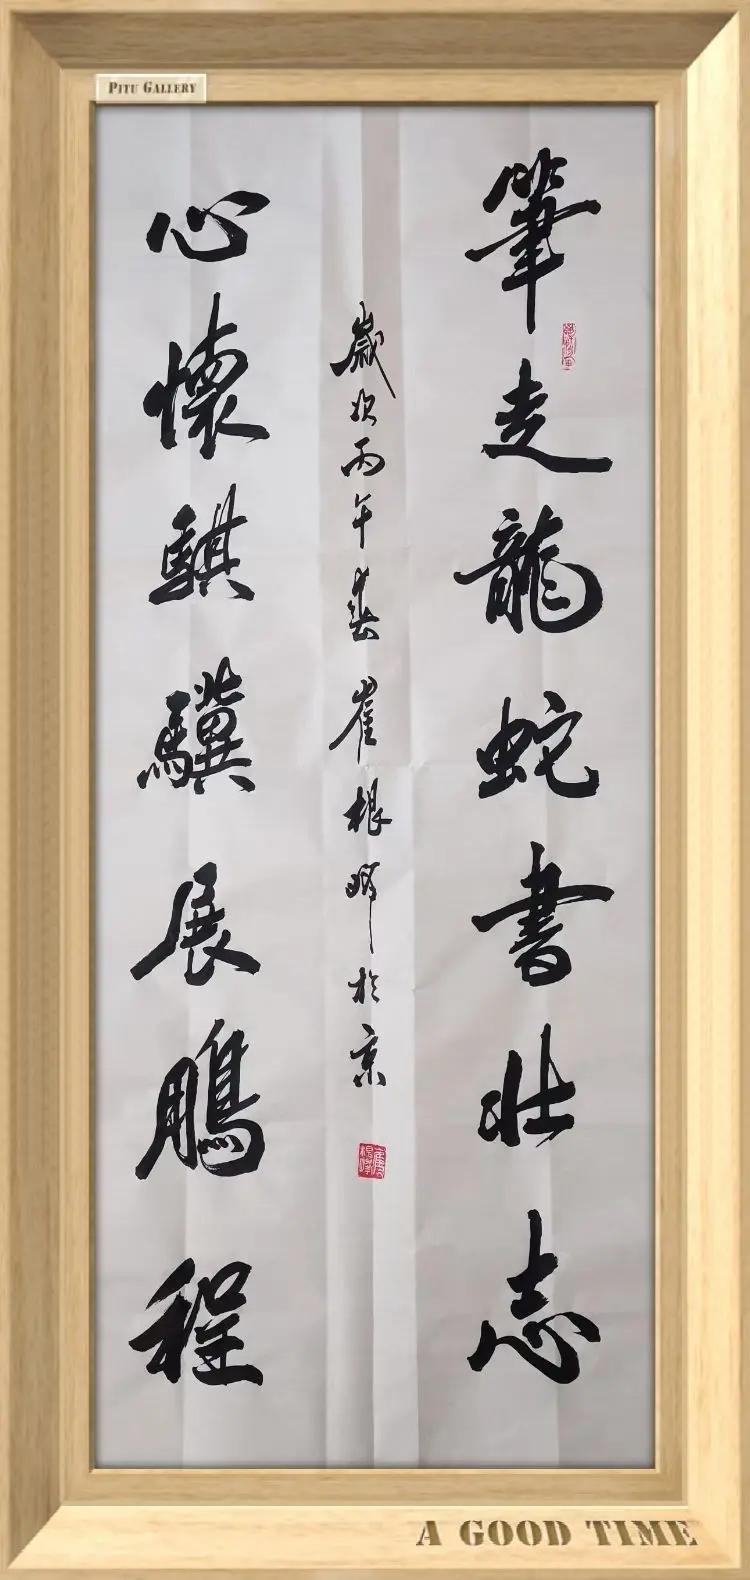 PITU GALLERY
筆走龍蛇書壯志
心懷騏驥展鵬程
歲次丙午春崔根嶂於京
A GOOD TIME